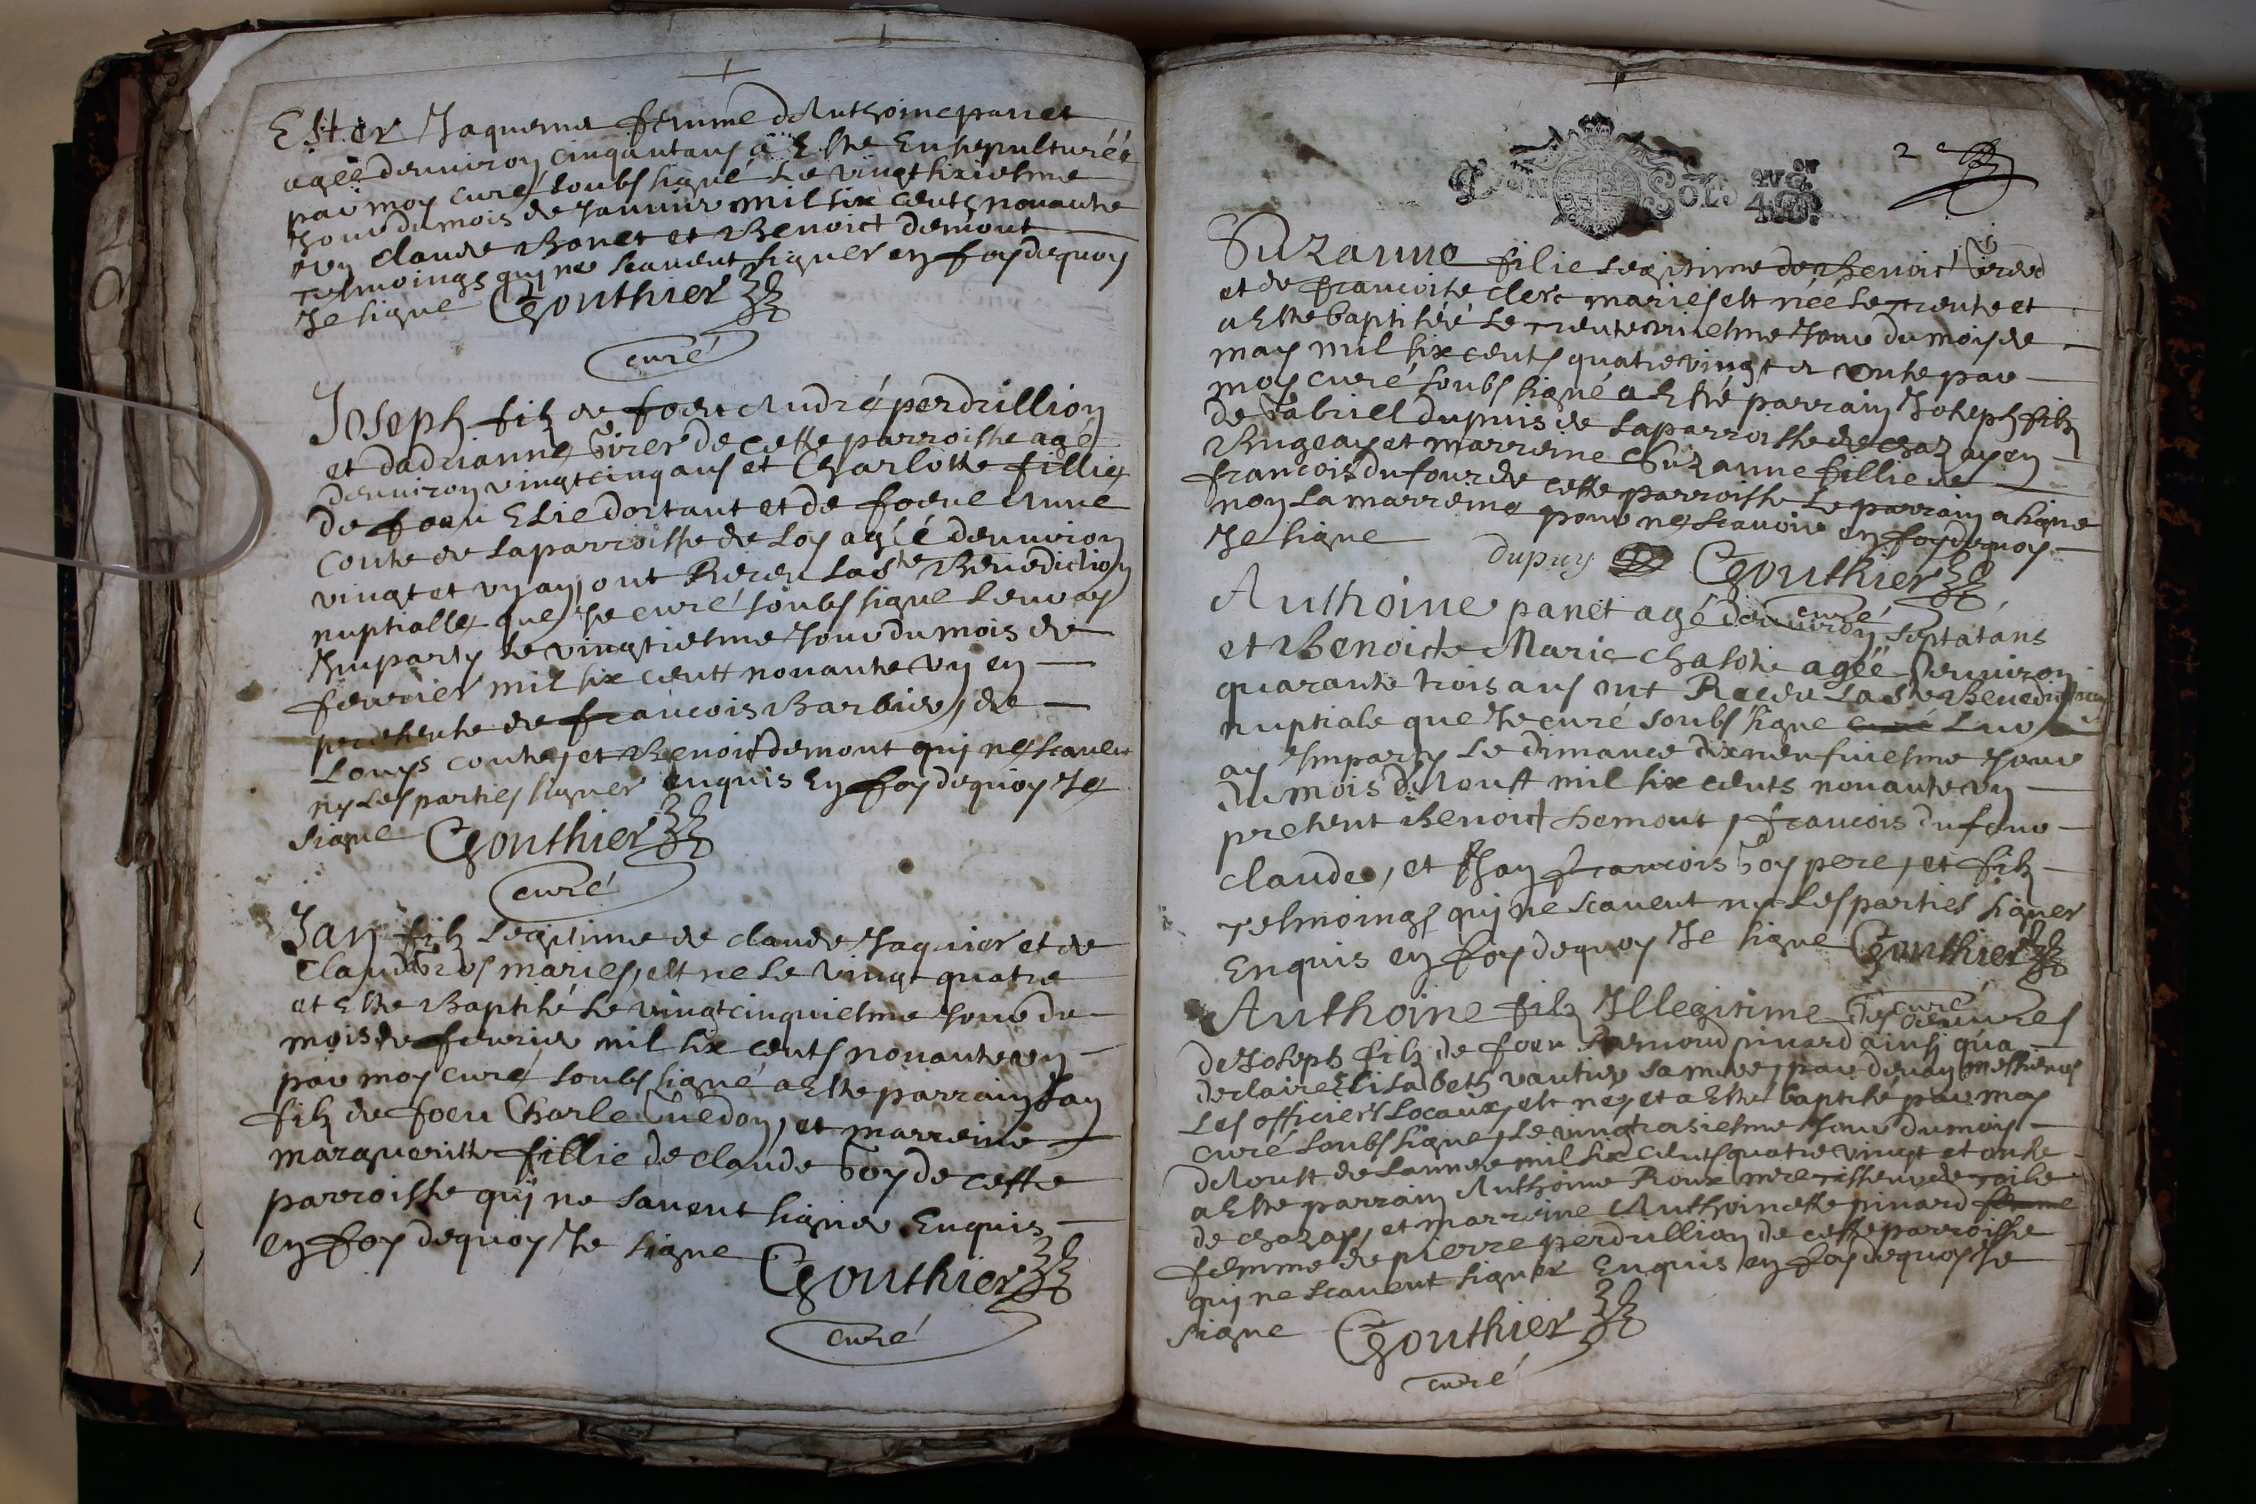 Ester Jaqueme femme dAnthoine panet
agée denuiron cinquntans a Este Ensepulturéé
par moy curé soubs signé Le vingt sixiesme
Jour du mois de Januier mil six cents nonante
vn claude Bonet et Benoict demont
tesmoings qui ne scauent signer en foy de quoy
Je signe Gonthier
curé
Joseph filz de foeu André perdrillion
et dadrianne Virer de cette parroisse agé
denuiron vingt cinq ans et Charlotte fillie
de foeu Elie dortant et de foeue Anne
Conte de La parroisse de Loy agéé denuiron
vingt et vn an, ont Receu La Ste Benediction
nuptialle que Je curé soubs signe Leur ay
Imparty Le vingtiesme Jour du mois de
feurier mil six cent nonante vn en
presence de francois Barbier, de
Louys conte, et Benoict demont quj ne scauent
ny Les parties signer enquis En foy de quoy Je
signe Gonthier
curé
Jan filz Legitime de claude Jaquier et de
Clauda mariés, est ne Le vingt quatre
et Este Baptisé Le vingt cinquiesme Jour du
mois de feurier mil six cents nonante vn
par moy curé soubs signé a Este parrain Jan
filz de foeu Charle Guedon, et marreine
margueritte fillie de claude Goy de cette
parroisse quj ne sauent signer Enquis
en foy de quoy Je signe
Gonthier
curé
2e
Suzanne fillie Legitime de Benoict
et de francoise clerc mariés est née Le trente et
a Este baptiséé Le trente vniesme Jour du mois de
may mil six cents quatre vingt et onse par
moy curé soubs signé a Esté parrain Joseph filz
de Gabriel dupuis de La parroisse de chazay en
Bugeay et marreine Suzanne fillie de
francois dufour de cette parroisse Le parrain a signe
non La marreine pour ne scauoir en foy de quoy
Je signe dupuy Gonthier
curé
Anthoine panet agé denuiron septatans
et Benoicte Marie chasote agéé denuiron
quarante trois ans ont Receu La Ste Benediction
nuptiale que Je curé soubs signe Leur
ay Imparty Le dimance dixneufuiesme Jour
du mois dAoust mil six cents nonante vn
present Benoict demont, francois dufour
claude, et Jan francois Goy pere, et filz
tesmoings quj ne scauent ny Les parties signer
Enquis en foy de quoy Je signe Gonthier
curé
Anthoine filz Illegitime des oeuures
de Joseph filz de foeu pinard ainsj qua
declaire Elisabeth vautier sa mere, par deuan messieurs
Les officiers Locaux, est ney et a Esté baptisé par moy
curé soubs signe, Le vingtroisiesme Jour du mois
dAoust de Lannee mil six cents quatre vingt et onse
a Este parrain Anthoine Roux mre tisseur de toile
de chazay, et marreine Anthoinette pinard femme
femme de pierre perdrillion de cette parroisse
quj ne scauent signer Enquis en foy de quoy Je
signe Gonthier
curé